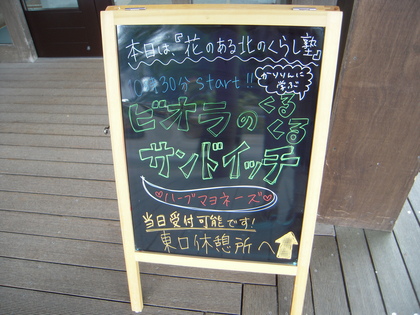 本日は、『花のある北のくらし塾』
10時30分 start!!
かりりんに
学ぶ
ビオラのくるくる
サンドイッチ
♡ハーブマヨネーズ♡
当日受付可能です!
東口休憩所へ↑